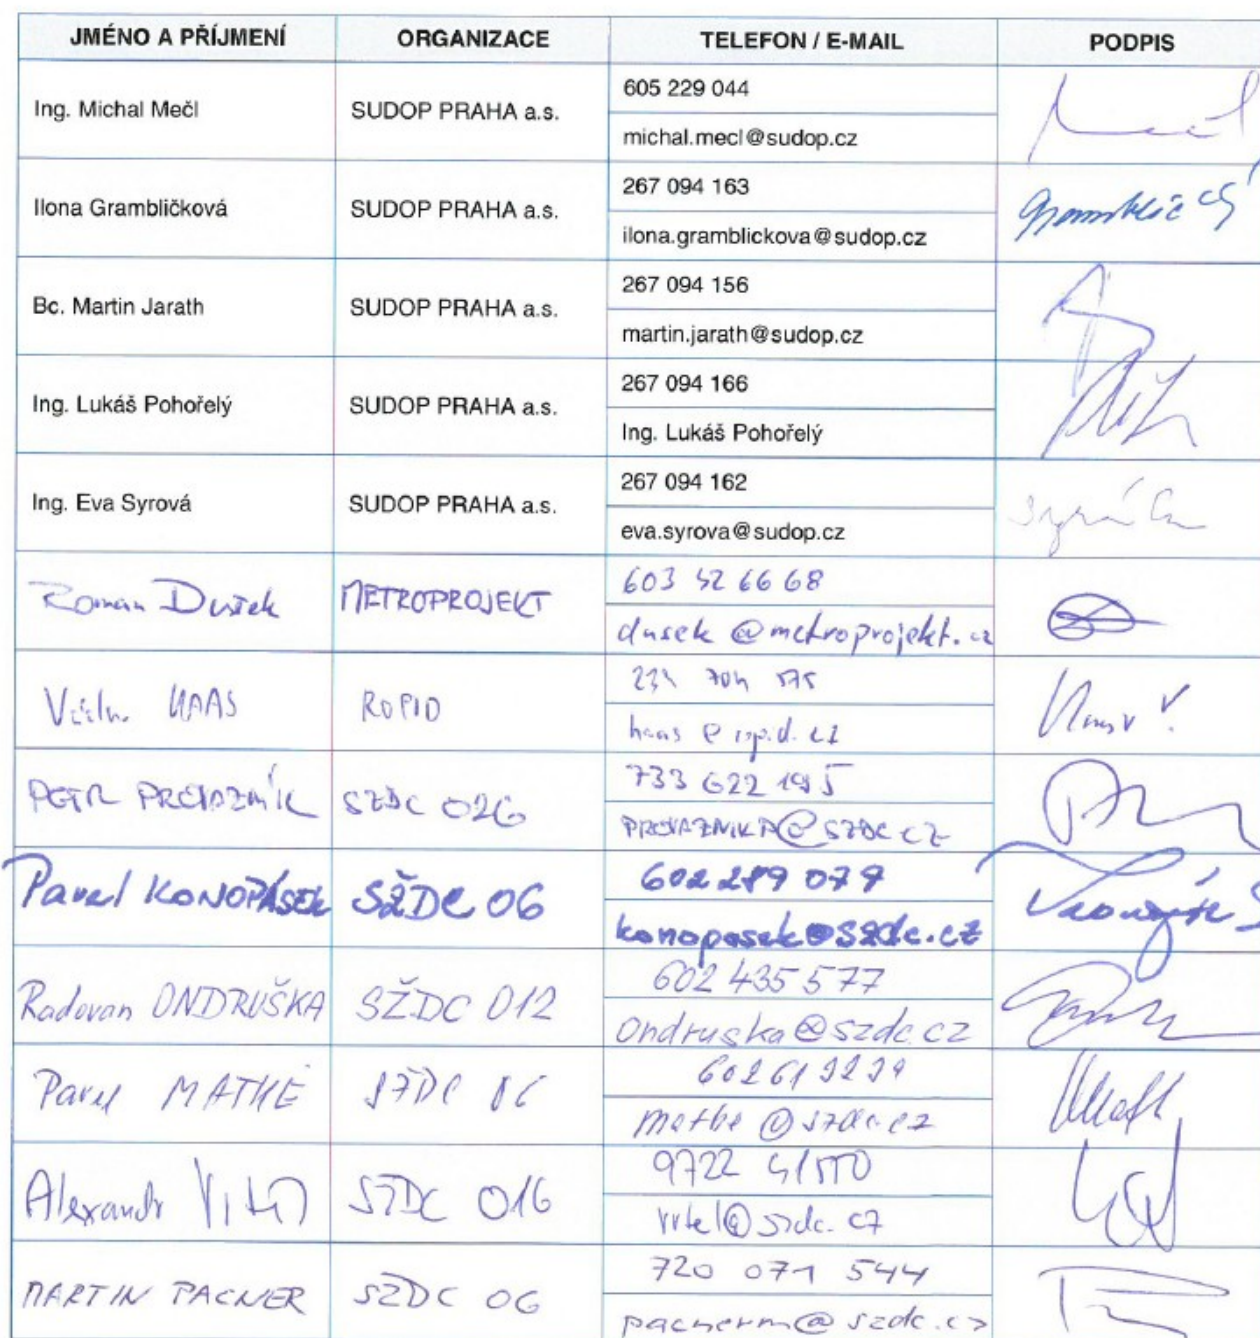 JMÉNO A PŘÍJMENÍ ORGANIZACE TELEFON / E-MAIL PODPIS
Ing. Michal Mečl SUDOP PRAHA a.s. 605 229 044
michal.mecl@sudop.cz
Ilona Grambličková SUDOP PRAHA a.s. 267 094 163
ilona.gramblickova@sudop.cz
Bc. Martin Jarath SUDOP PRAHA a.s. 267 094 156
martin.jarath@sudop.cz
Ing. Lukáš Pohořelý SUDOP PRAHA a.s. 267 094 166
Ing. Lukáš Pohořelý
Ing. Eva Syrová SUDOP PRAHA a.s. 267 094 162
eva.syrova@sudop.cz
Roman Dušek METROPROJEKT 603 42 66 68
dusek @metroprojekt.cz
HAAS ROPID 234 704 575
haas @ ropid.cz
PETR PROVAZNÍK SŽDC O26 733 622 195
PROVAZNIKP@SZDC.CZ
Pavel KONOPÁSEK SŽDC O6 602 289 079
konopasek@szdc.cz
Radovan ONDRUŠKA SŽDC O12 602 435 577
Ondruska@szdc.cz
Pavel MATHÉ SŽDC O6
mathe @szdc.cz
Alexandr SŽDC O16
@szdc.cz
MARTIN PACNER SŽDC O6 720 071 544
pacnerm@szdc.cz